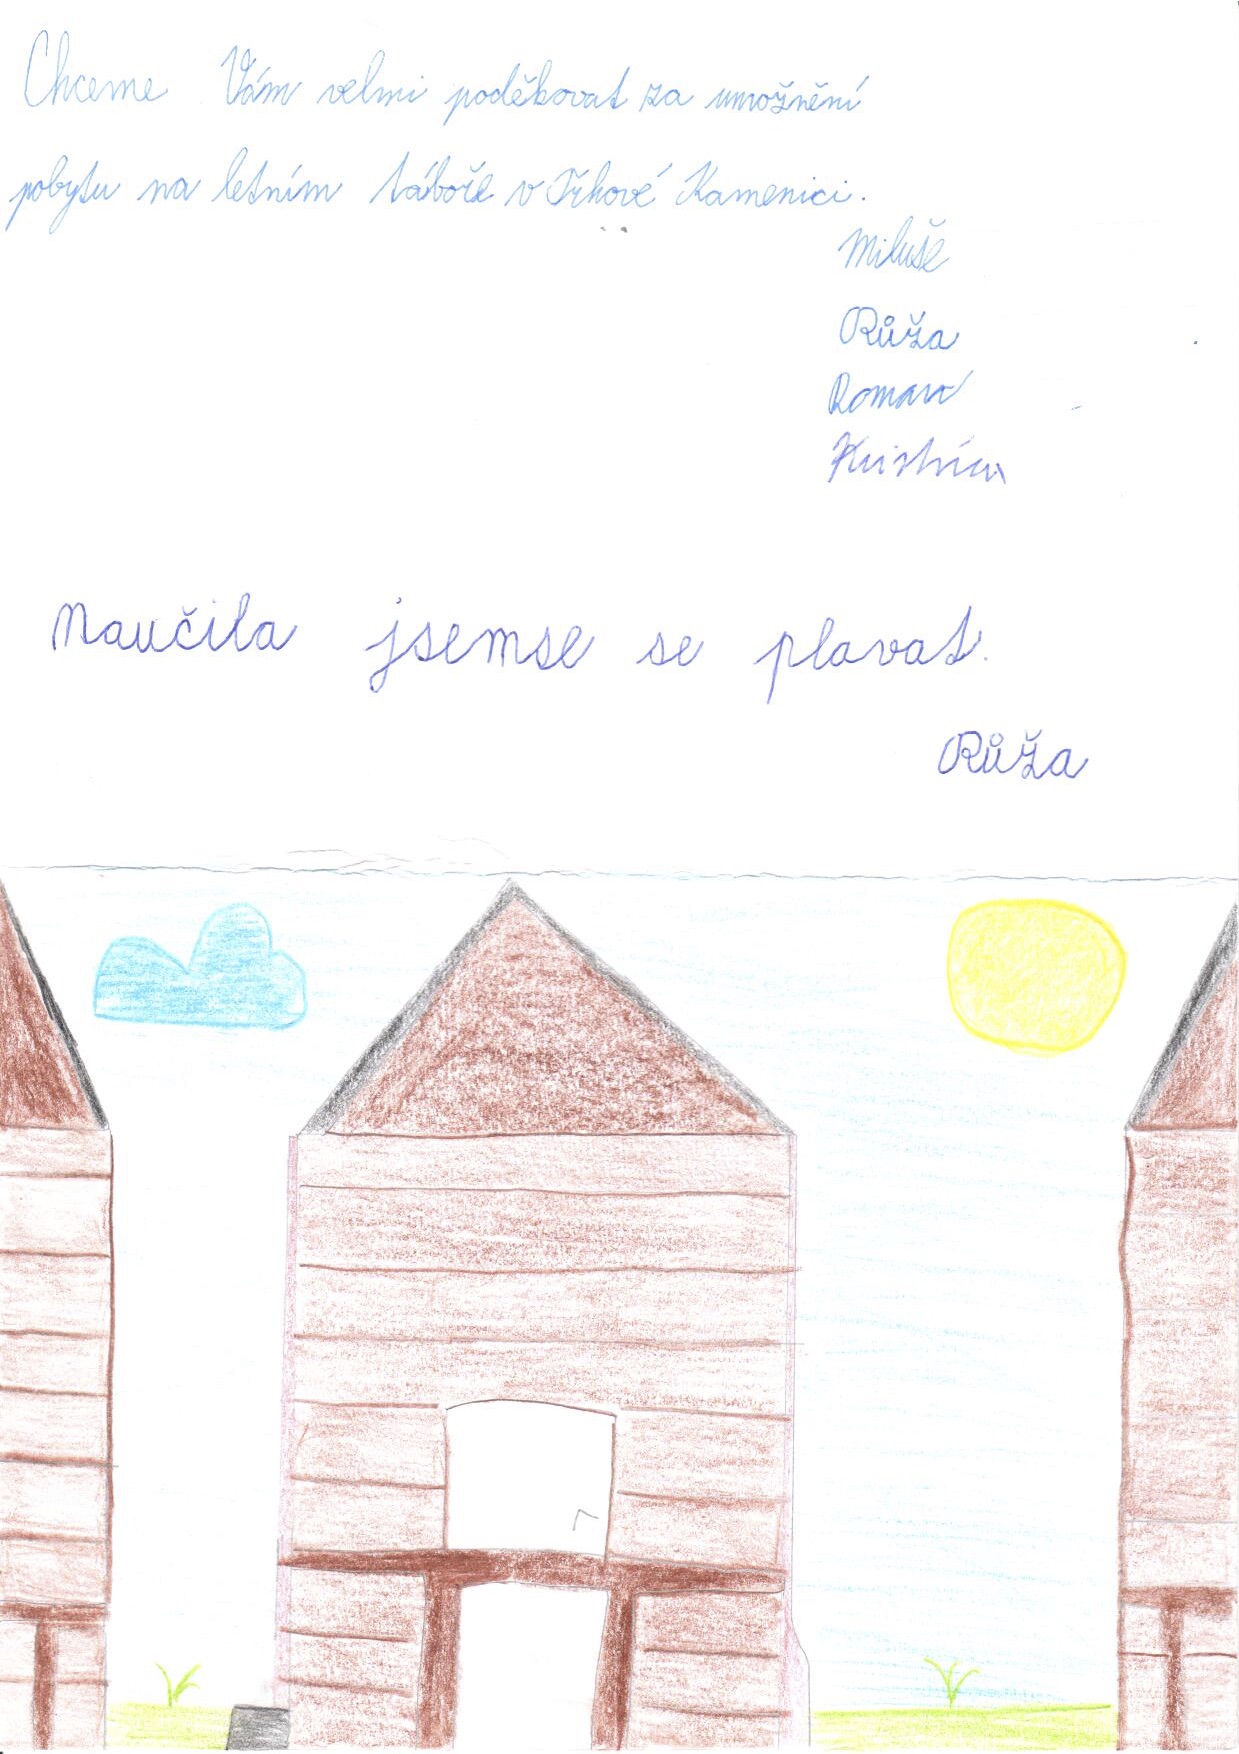 Chceme Vám velmi poděkovat za umožnění
pobytu na letním táboře v Trhové Kamenici.
Miluše
Růža
Roman
Kristína
Naučila jsemse se plavat.
Růža